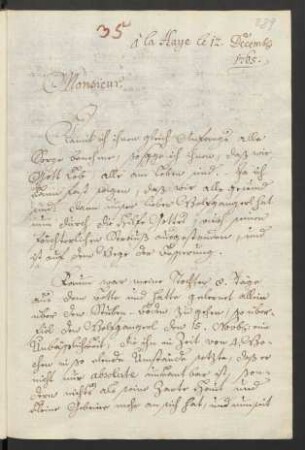 35
à la Haye le 12. Decemb:
1765.
Monsieur.
Damit ich ihnen gleich Anfangs alle
Sorge benehme, so sage ich ihnen, daß wir
Gott Lob, alle am Leben sind. Ja ich
kann fast sagen, daß wir alle gesund
sind. denn unser lieber Wolfgangerl hat
nun durch die Hilfe Gottes auch seinen
förchterlichen Strauß ausgestanden, und
ist auf dem Wege der Besserung.
Kaum war meine Tochter 8. Täge
aus dem Bette und hatte gelernet allein
über den Stuben-Boden zu gehen, so über-
fiel den Wolfgangerl den 15. Novb: eine
Unbässlichkeit, die ihn in Zeit von 4. Wo-
chen in so elende Umstände setzte, daß er
nicht nur absolute unkantbar ist, son-
dern nichts als seine zarte Haut und
kleine Gebeine mehr an sich hat, und nun seit